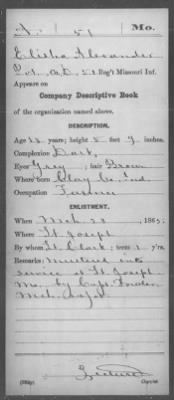 A. 51 Mo.
Elisha Alexander
Pvt, Co. D, 51 Reg't Missouri Inf.
Appears on
Company Descriptive Book
of the organization named above.
DESCRIPTION.
Age 18 years; height 5 feet 7 inches.
Complexion Dark,
Eyes Grey; hair Brown
Where born Clay Co. Ind.
Occupation Farmer
ENLISTMENT.
When Mch. 23, 1865.
Where St. Joseph
By whom Lt. Clark; term 1 y'rs.
Remarks: Mustered into
service at St. Joseph
Mo. by Capt.
Mch.
Copyist.